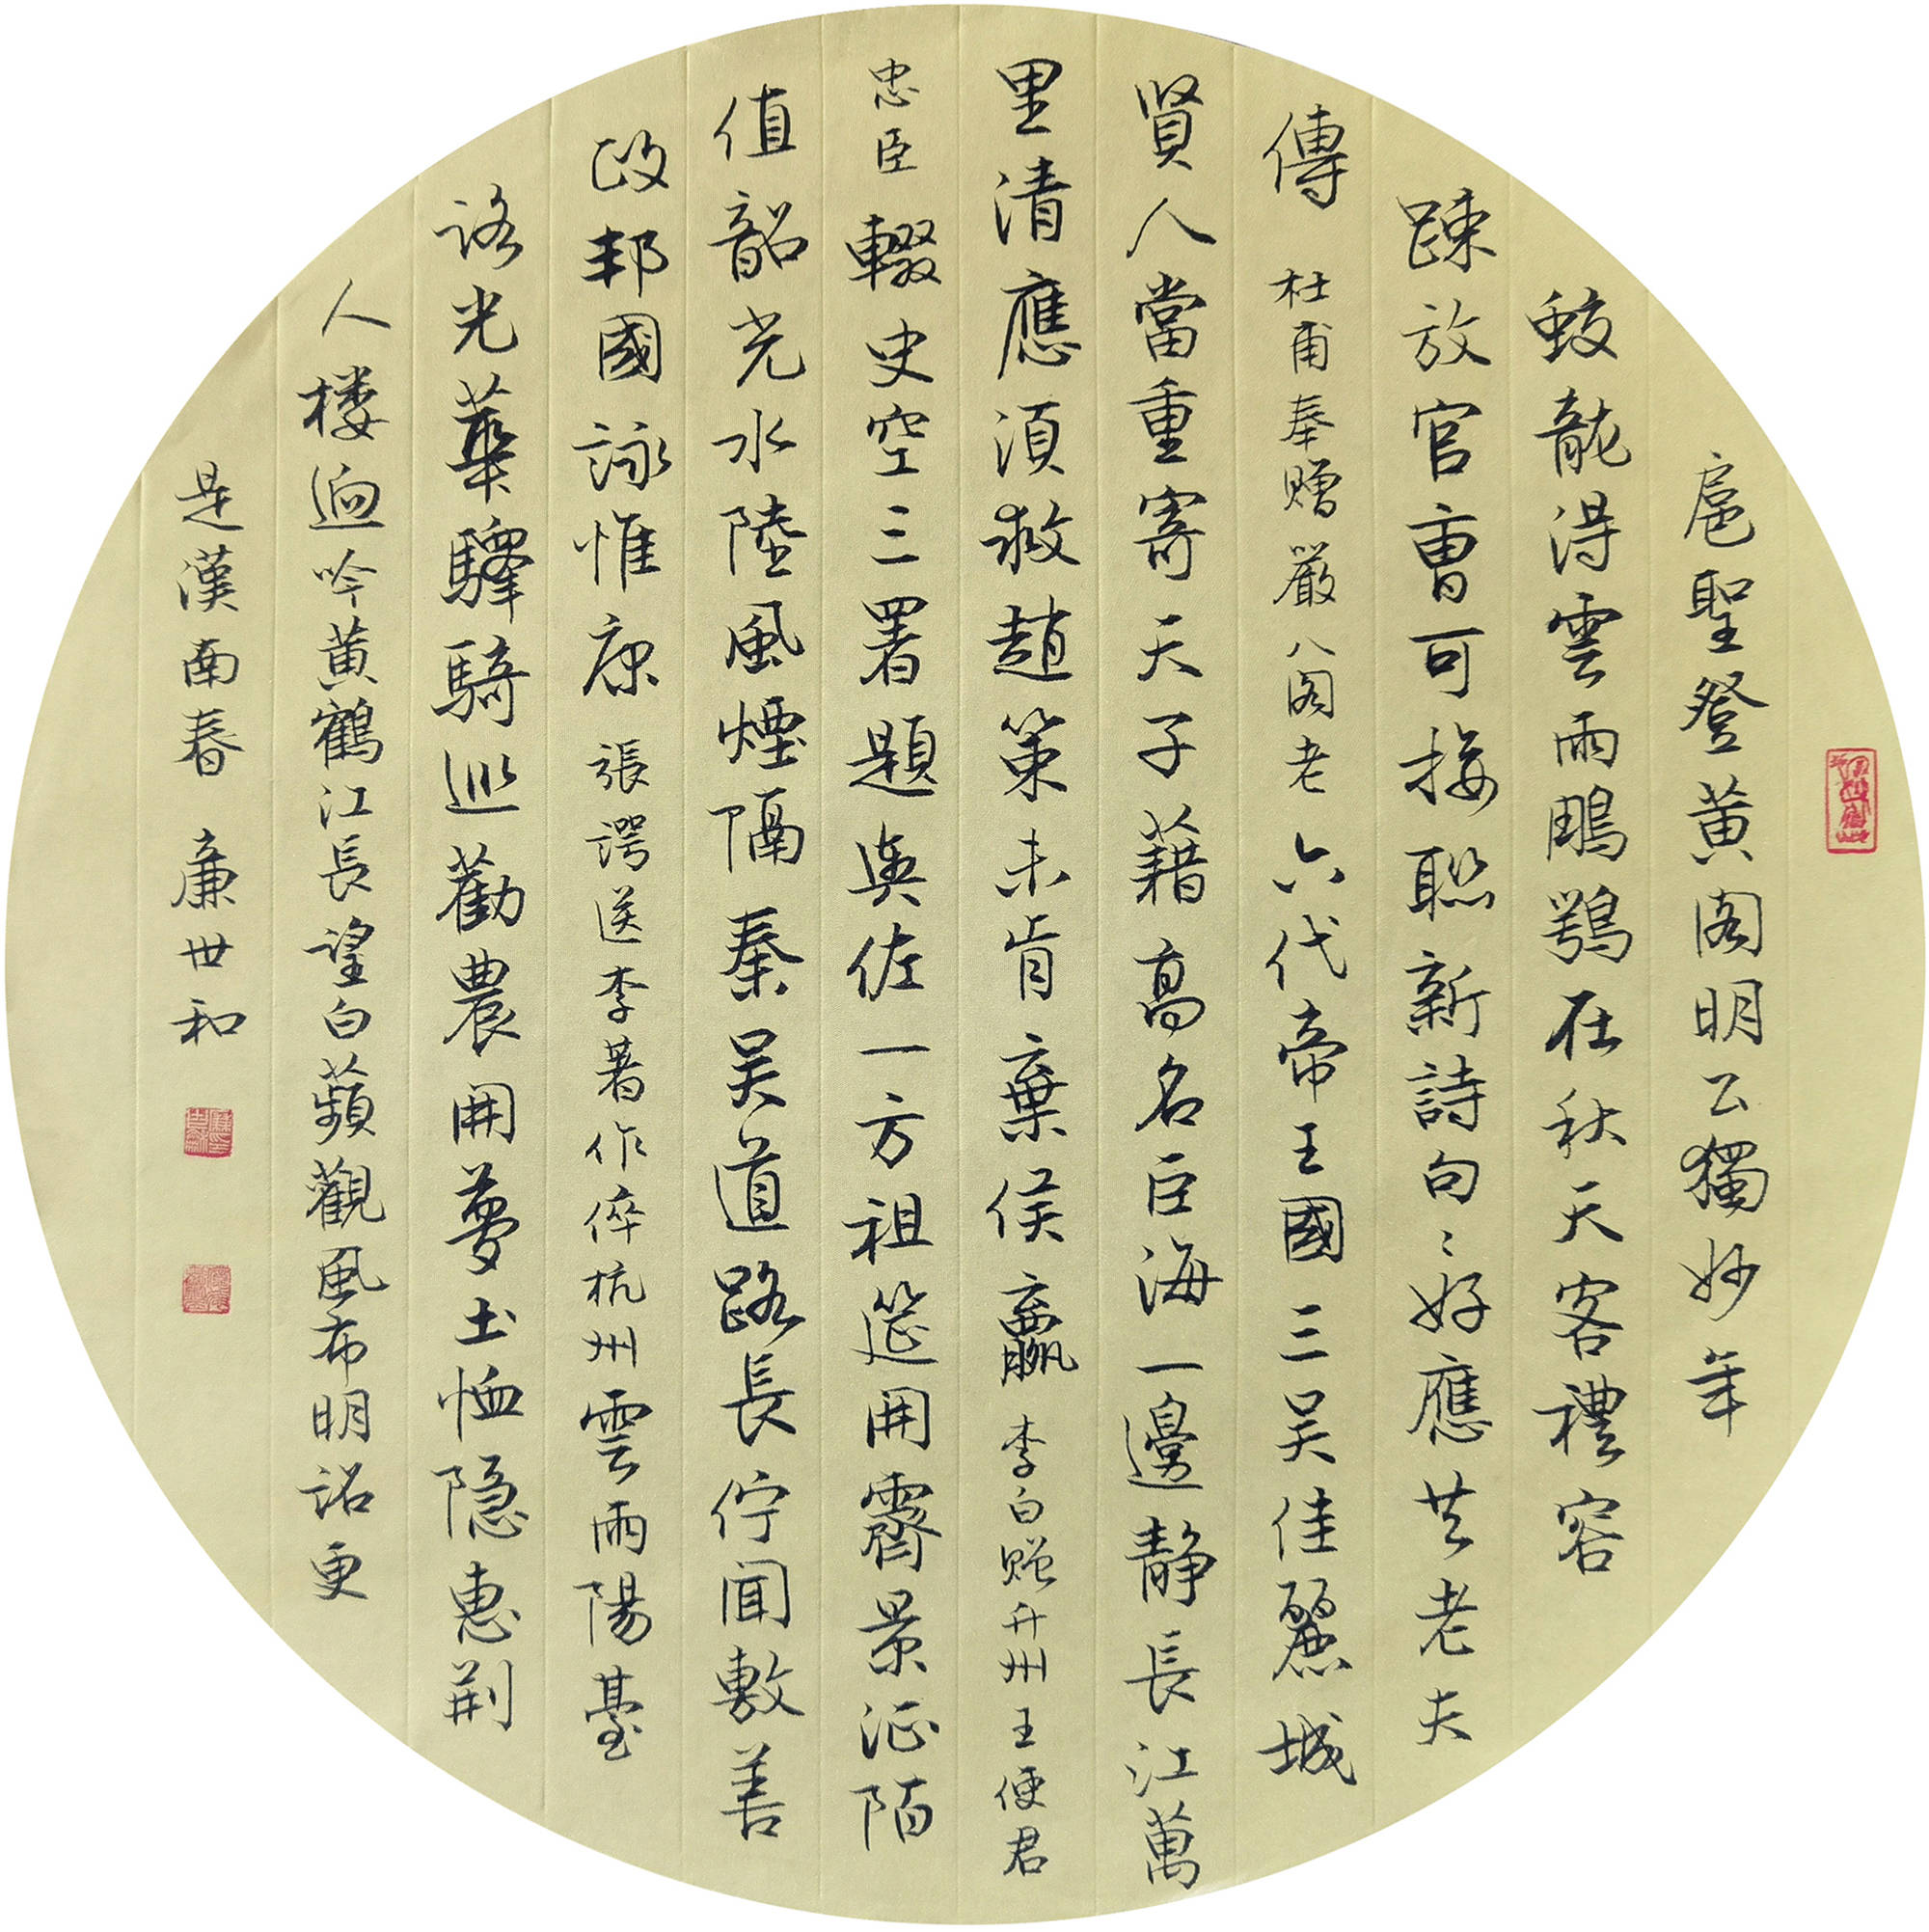 扈聖登黄閣明公獨妙年
蛟龍得雲雨鵰鶚在秋天客禮容
踈放官曹可接聯新詩句〻好應共老夫
傳 杜甫奉贈嚴八閣老 六代帝王國三吴佳麗城
賢人當重寄天子藉高名巨海一邊静長江萬
里清應須救趙策未肯棄侯嬴 李白贈升州王使君
忠臣 輟史空三署題輿佐一方祖筵開霽景征陌
值韶光水陸風煙隔秦吴道路長佇聞敷善
政邦國詠惟康 張諤送李著作倅杭州 雲雨陽臺
路光華驛騎巡勸農開夢土恤隐惠荆
人楼迥吟黄鶴江長望白蘋觀風布明詔更
是漢南春 廉世和